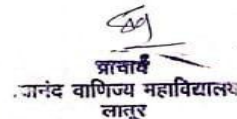 प्राचार्य
नंद वाणिज्य महाविद्यालय
लातूर